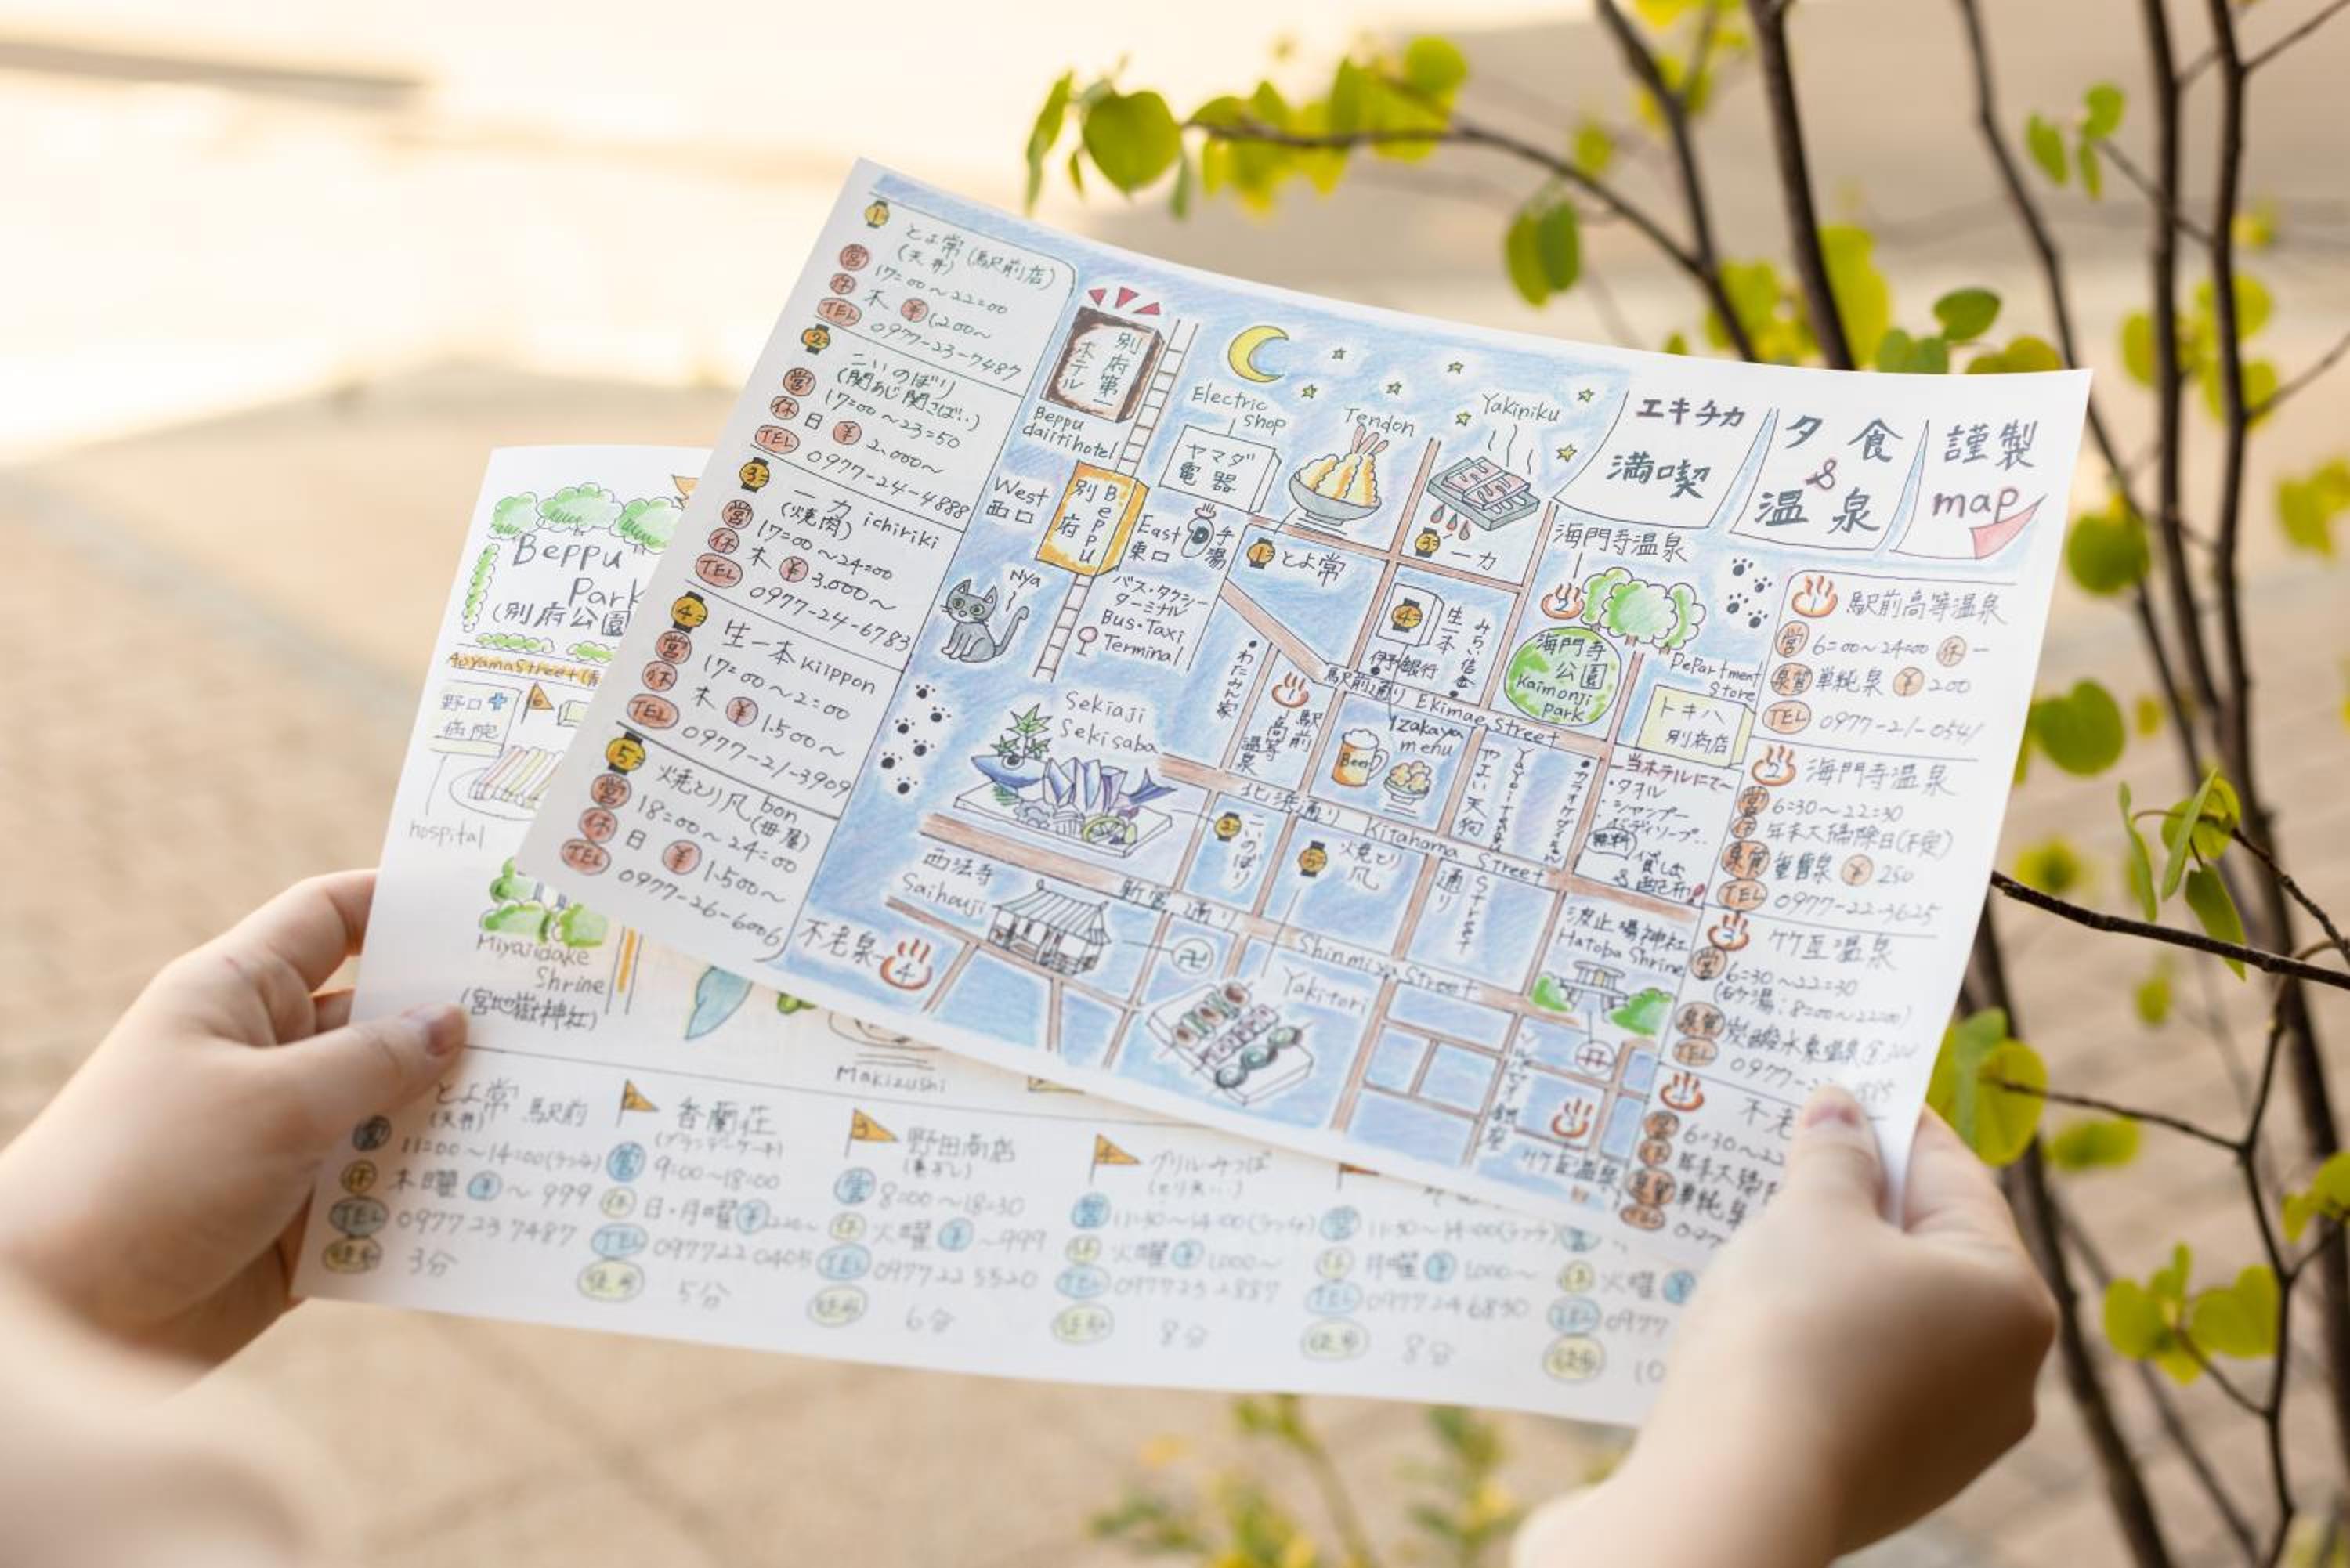 1
とよ常(駅前店)
(天丼)
営 17:00～22:00
休 木 ¥1,200～
TEL 0977-23-7487
2
こいのぼり
(関あじ関さば…)
営 17:00～23:50
休 日 ¥2,000～
TEL 0977-24-4888
3
一力 ichiriki
(焼肉)
営 17:00～24:00
休 木 ¥3,000～
TEL 0977-24-6783
4
生一本 kiippon
営 17:00～2:00
休 木 ¥1,500～
TEL 0977-21-3909
5
焼とり凡 bon
営 18:00～24:00
休 日 ¥1,500～
TEL 0977-26-6006
別府第一
ホテル
Beppu
daiitihotel
Electric
Shop
ヤマダ
電器
Tendon
Yakiniku
エキチカ
満喫
夕食
&
温泉
謹製
map
West
西口
Beppu
別府
East
東口
手湯
1 とよ常
3 一力
海門寺温泉
2
Nya
バス・タクシー
ターミナル
Bus・Taxi
Terminal
4
生一本
みらい信金
伊予銀行
海門寺
公園
Kaimonji
park
Department
Store
トキハ
別府店
わたみん家
駅前通り Ekimae Street
1
駅前
高等
温泉
Izakaya
menu
Beer
やよい天狗
Sekiaji
Sekisaba
2
こいのぼり
北浜通り Kitahama Street
5
焼とり
凡
通り
Street
～当ホテルにて～
・タオル
・シャンプー
・ボディソープ…
無料
西法寺
Saihouji
新宮通り Shinmiya Street
卍
不老泉
4
Yakitori
波止場神社
Hatoba Shrine
竹瓦温泉
1 駅前高等温泉
営 6:00～24:00 休 ー
泉質 単純泉 ¥200
TEL 0977-21-0541
2 海門寺温泉
営 6:30～22:30
休 年末大掃除日(不定)
泉質 重曹泉 ¥250
TEL 0977-22-3625
3 竹瓦温泉
営 6:30～22:30
(砂湯:8:00～22:00)
泉質 炭酸水素塩泉
TEL 0977-2
4 不老
営 6:30～22
泉質 単純泉
TEL 0977
Beppu
Park
(別府公園
Aoyama Street
野口
病院
6
hospital
Miyajidake
Shrine
(宮地嶽神社)
Makizushi
とよ常 駅前
(天丼)
営 11:00～14:00(ランチ)
休 木曜 ¥～999
TEL 0977 23 7487
徒歩 3分
2 香蘭荘
営 9:00～18:00
休 日・月曜
TEL 0977 22 0405
徒歩 5分
3 野田商店
営 8:00～18:30
休 火曜 ¥～999
TEL 0977 22 5520
徒歩 6分
4 グリルみつば
(とり天…)
営 11:30～14:00(ランチ)
休 火曜 ¥1,000～
TEL 0977 23 2887
徒歩 8分
営 11:30～14:00(ランチ)
休 月曜 ¥1,000～
TEL 0977 24 6830
徒歩 8分
休 火曜
TEL 0977
徒歩 10